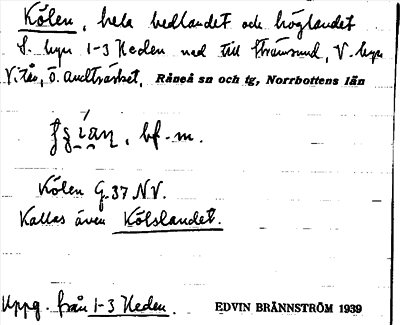 Kölen, hela hedlandet och höglandet
S. byn 1-3 Heden ned till Strömsund, V. byn
Vitån, Ö. Andträsket. Råneå sn och tg, Norrbottens län
bf. m.
Kölen G.37 NV.
Kallas även Kölslandet.
Uppg. från 1-3 Heden. EDVIN BRÄNNSTRÖM 1939